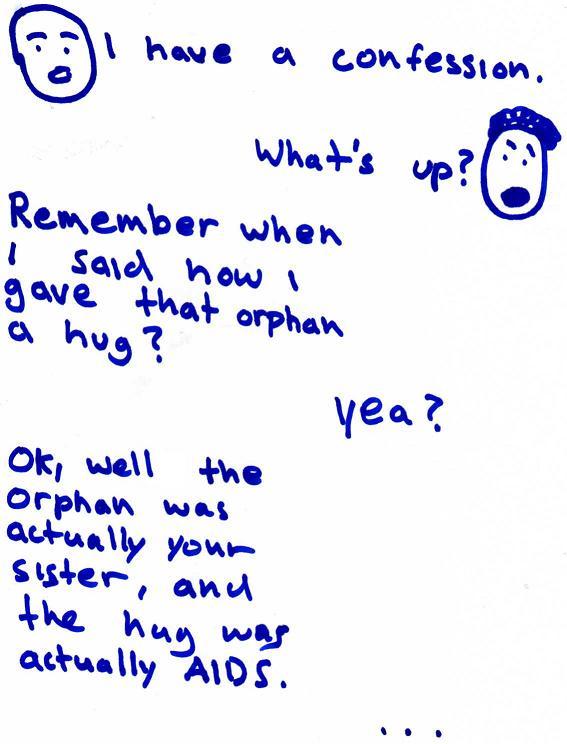 I have a confession.
What's up?
Remember when
I said how I
gave that orphan
a hug?
yea?
Ok, well the
orphan was
actually your
sister, and
the hug was
actually AIDS.
...